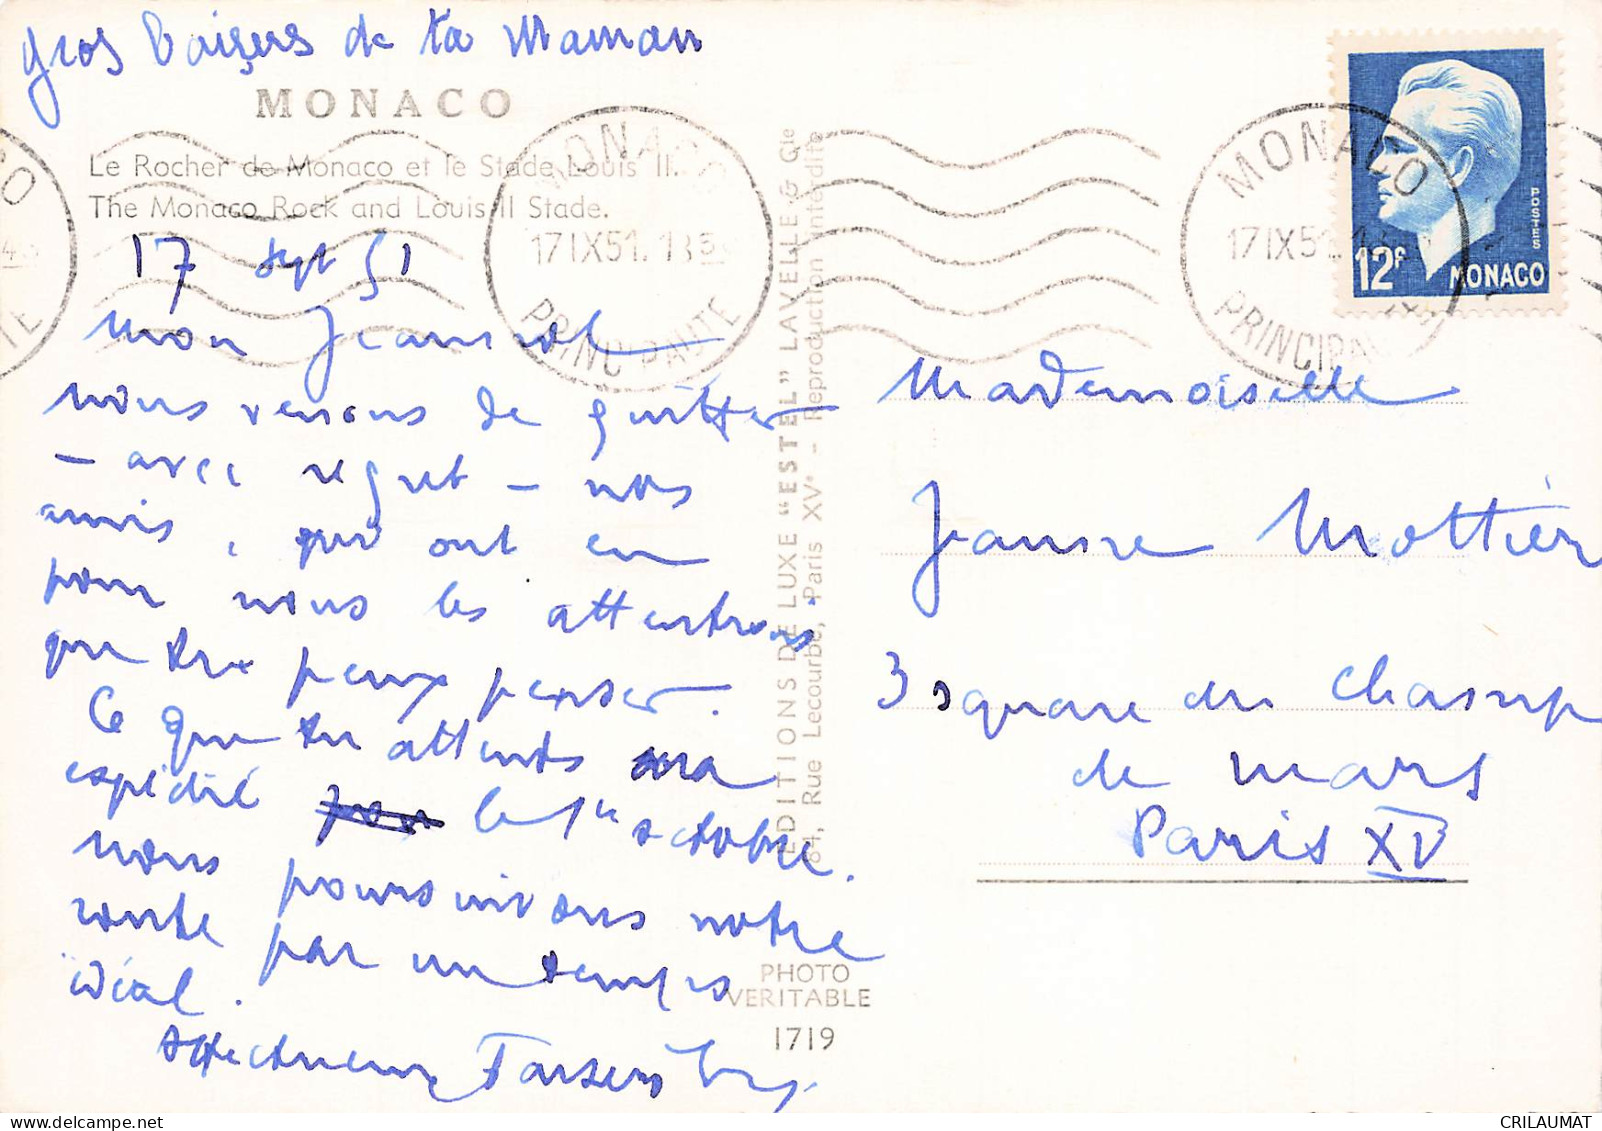 gros baisers de ta Maman
MONACO
Le Rocher de Monaco et le Stade Louis II.
The Monaco Rock and Louis II Stade.
17 sept 51
mon Jeannot
nous venons de quitter
- avec regret - nos
amis, qui ont eu
pour nous les attentions
que tu peux penser.
Ce que tu attends sera
expédié le 1er octobre.
nous poursuivons notre
route par un temps
idéal.
affectueux
EDITIONS DE LUXE "ESTEL" LAVELLE & Cie
84, Rue Lecourbe, Paris XVe - Reproduction interdite
PHOTO
VERITABLE
1719
MONACO
17IX51. 18
PRINCIPAUTE
MONACO
17IX51
POSTES
12f MONACO
Mademoiselle
Jeanne Mottier
3 square du champ
de mars
Paris XV
CRILAUMAT